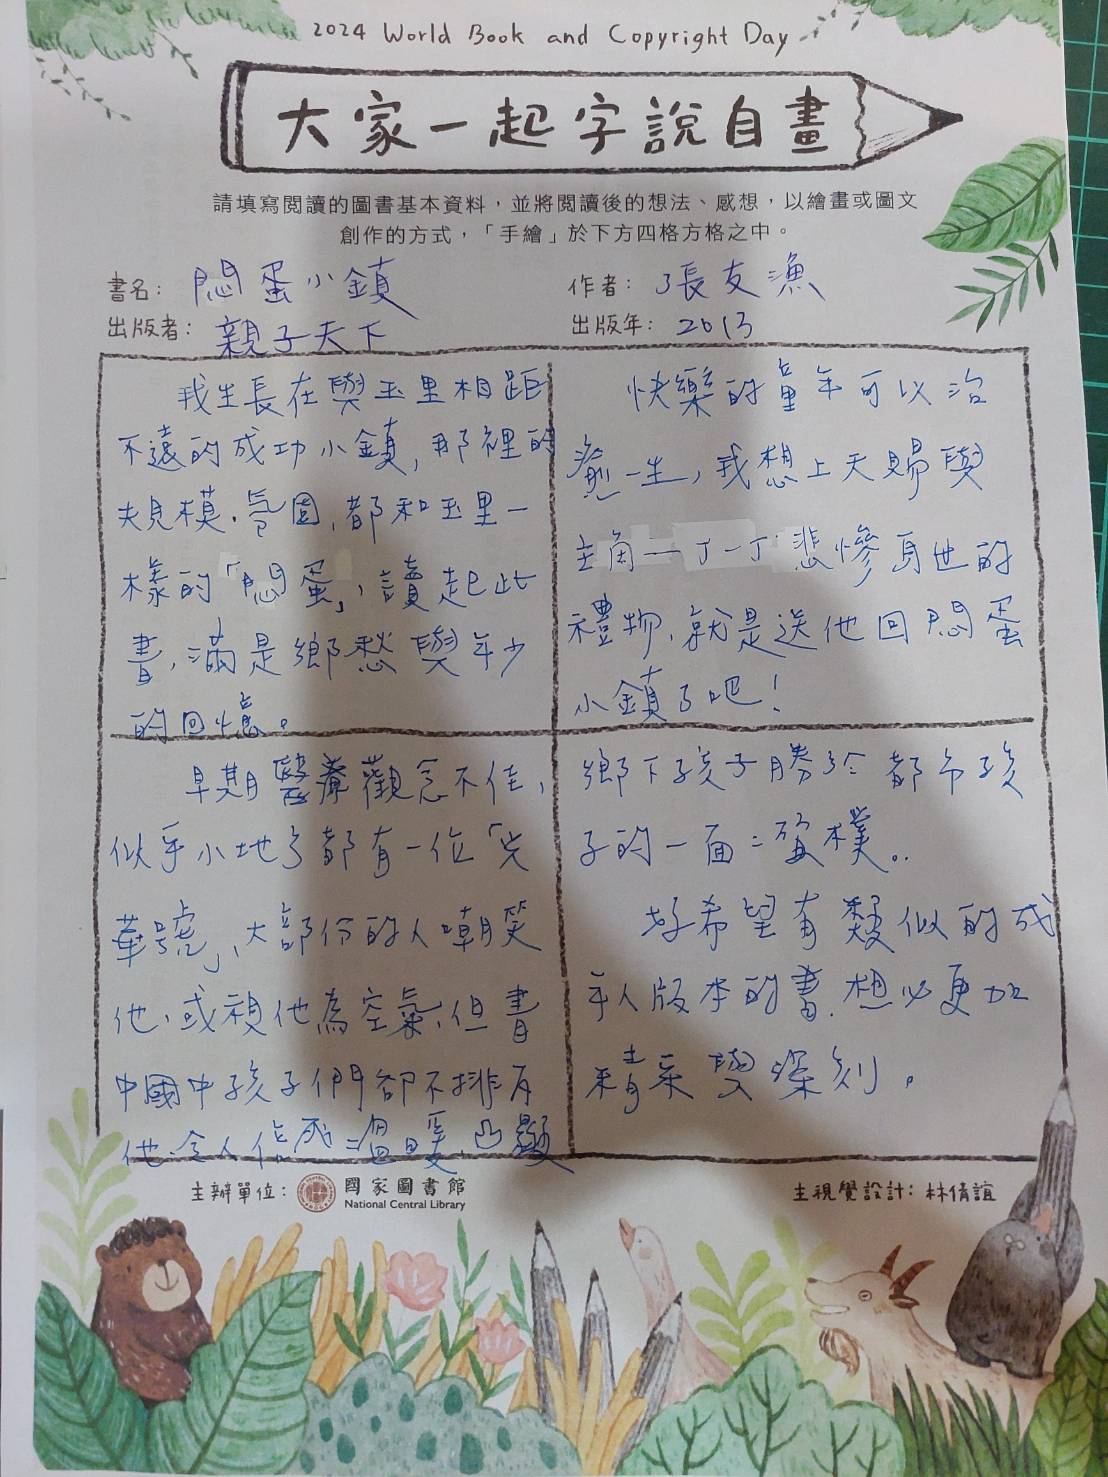 2024 World Book and Copyright Day
大家一起字說自畫
請填寫閱讀的圖書基本資料，並將閱讀後的想法、感想，以繪畫或圖文
創作的方式，「手繪」於下方四格方格之中。
書名：悶蛋小鎮
作者：張友漁
出版者：親子天下
出版年：2013
我生長在與玉里相距
不遠的成功小鎮，那裡的
規模、氛圍，都和玉里一
樣的「悶蛋」，讀起此
書，滿是鄉愁與年少
的回憶。
快樂的童年可以治
癒一生，我想上天賜與
主角—丁一丁悲慘身世的
禮物，就是送他回悶蛋
小鎮了吧！
早期醫療觀念不佳，
似乎小地方都有一位「
號」，大部份的人嘲笑
他，或視他為空氣，但書
中國中孩子們卻不排斥
他，令人倍感溫暖，凸顯
鄉下孩子勝於都市孩
子的一面：質樸。
好希望有類似的成
年人版本的書，想必更加
精采與深刻。
主辦單位：國家圖書館
National Central Library
主視覺設計：林倩誼